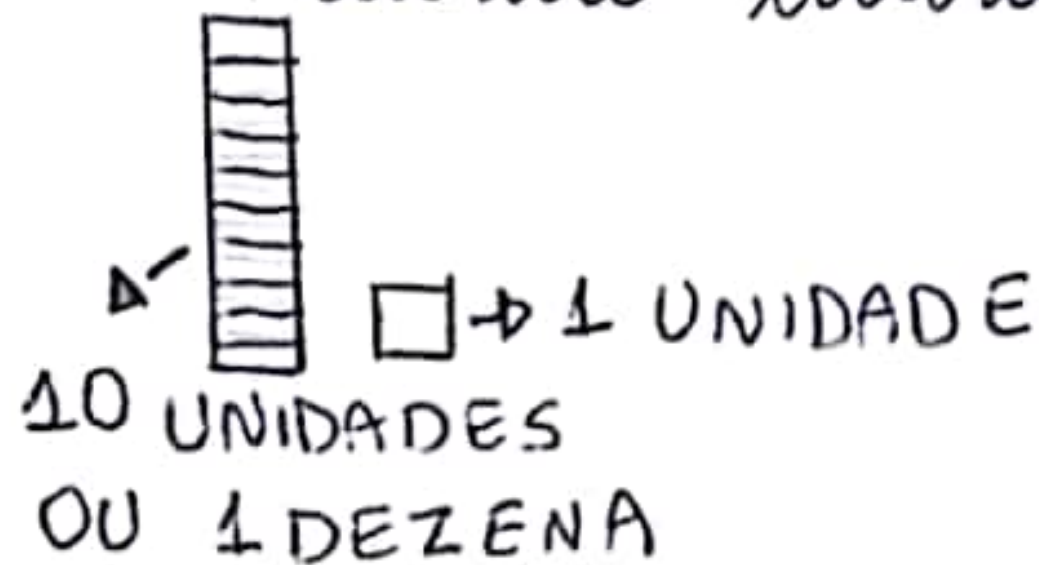 1 UNIDADE
10 UNIDADES
OU 1 DEZENA